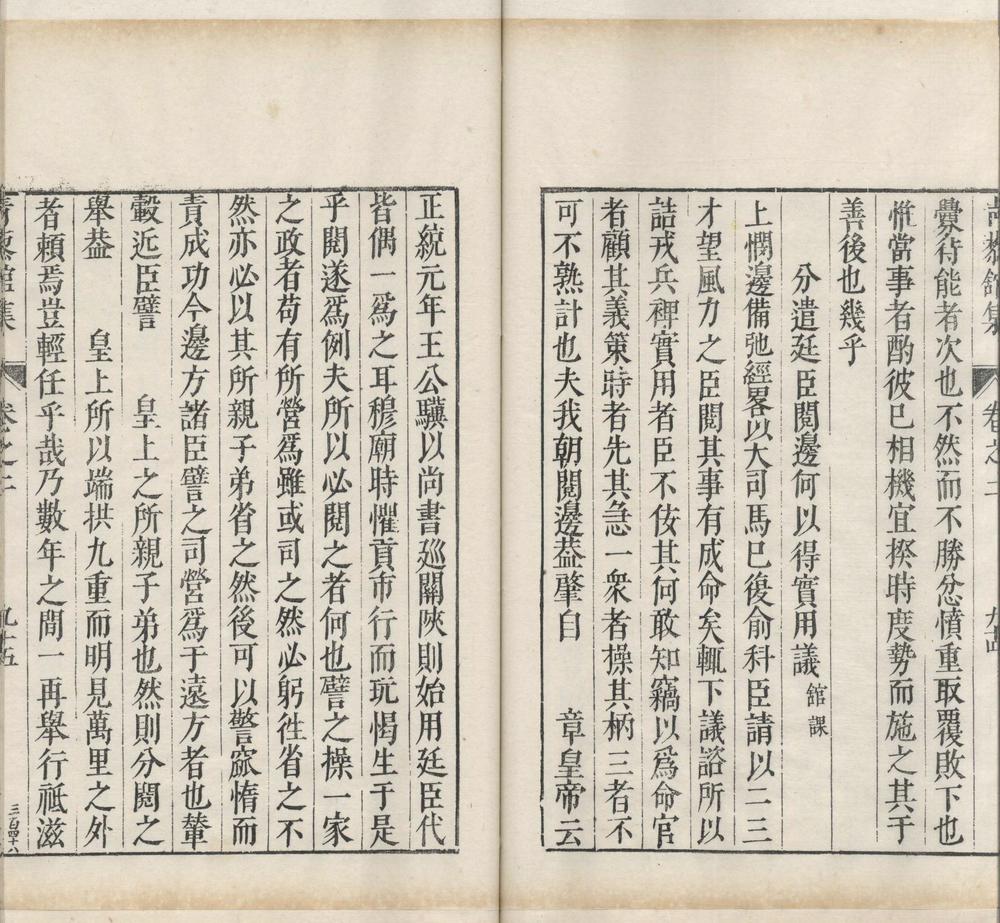 卷之二
九十四
釁待能者次也不然而不勝忿憤重取覆敗下也
惟當事者酌彼已相機宜揆時度勢而施之其于
善後也幾乎
分遣廷臣閱邊何以得實用議 館課
上憫邊備弛經畧以大司馬已復俞科臣請以二三
才望風力之臣閱其事有成命矣輒下議諮所以
詰戎兵裨實用者臣不佞其何敢知竊以為命官
者顧其義策時者先其急一衆者操其柄三者不
可不熟計也夫我朝閱邊葢肇自 章皇帝云
正統元年王公驥以尚書廵關陝則始用廷臣代
皆偶一爲之耳穆廟時懼貢市行而玩愒生于是
乎閱遂爲例夫所以必閱之者何也譬之操一家
之政者苟有所營爲雖或司之然必躬徃省之不
然亦必以其所親子弟省之然後可以警窳惰而
責成功今邊方諸臣譬之司營爲于遠方者也輦
轂近臣譬 皇上之所親子弟也然則分閱之
舉葢 皇上所以端拱九重而明見萬里之外
者賴焉豈輕任乎哉乃數年之間一再舉行祗滋
青藜館集
卷之二
九十五
三百四十八